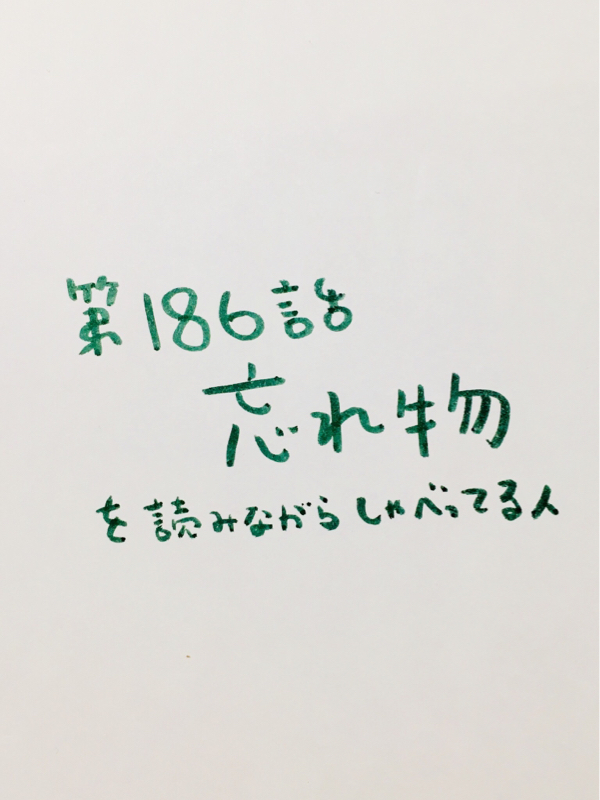 第186話
忘れ物
を読みながらしゃべってる人